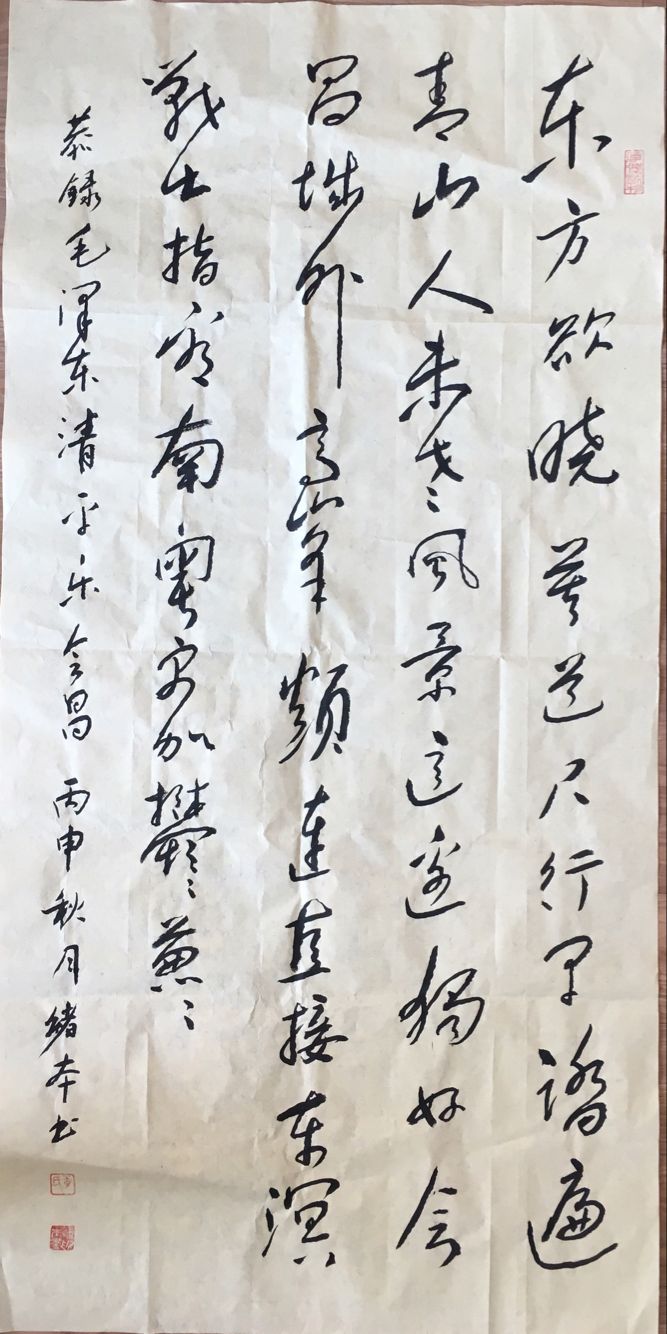 东方欲晓莫道君行早踏遍
青山人未老风景这边獨好会
昌城外高峯顛連直接东溟
戰士指看南粤更加欝々葱々
恭録毛泽东清平乐会昌 丙申秋月緒本书